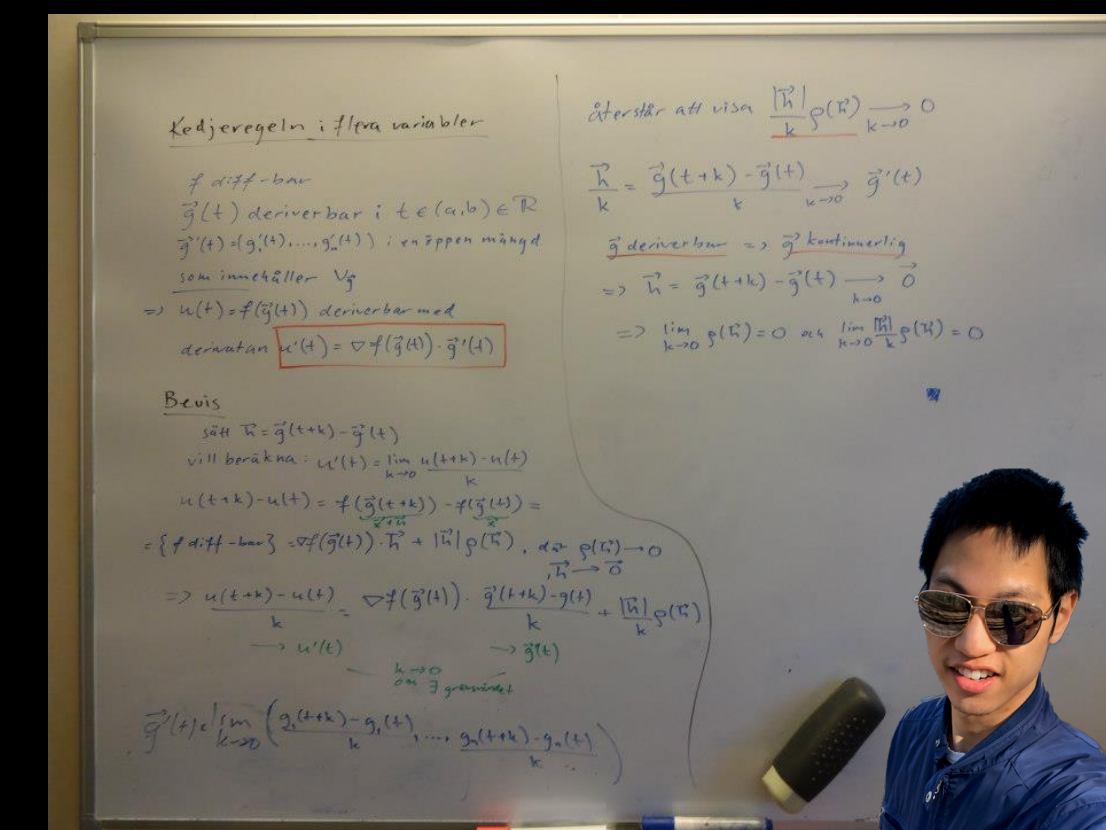 Kedjeregeln i flera variabler
f diff-bar
g⃗(t) deriverbar i t∈(a,b)∈ℝ
g⃗'(t)=(g₁'(t),...,gₙ'(t)) i en öppen mängd
som innehåller V_g⃗
=> u(t)=f(g⃗(t)) deriverbar med
derivatan u'(t) = ∇f(g⃗(t))·g⃗'(t)
Bevis
sätt h⃗=g⃗(t+k)-g⃗(t)
vill beräkna: u'(t) = lim_{k→0} (u(t+k)-u(t))/k
u(t+k)-u(t) = f(g⃗(t+k)) - f(g⃗(t)) =
x⃗+h⃗ x⃗
={f diff-bar} =∇f(g⃗(t))·h⃗ + |h⃗|ρ(h⃗), där ρ(h⃗)→0
, h⃗→0⃗
=> (u(t+k)-u(t))/k = ∇f(g⃗(t))·(g⃗(t+k)-g(t))/k + |h⃗|/k ρ(h⃗)
→ u'(t) → g⃗'(t)
k→0
om ∃ gränsvärdet
g⃗'(t)= lim_{k→0} ((g₁(t+k)-g₁(t))/k, ..., (gₙ(t+k)-gₙ(t))/k)
återstår att visa |h⃗|/k ρ(h⃗) →_{k→0} 0
h⃗/k = (g⃗(t+k)-g⃗(t))/k →_{k→0} g⃗'(t)
g⃗ deriverbar => g⃗ kontinuerlig
=> h⃗ = g⃗(t+k)-g⃗(t) →_{k→0} 0⃗
=> lim_{k→0} ρ(h⃗)=0 och lim_{k→0} |h⃗|/k ρ(h⃗) = 0